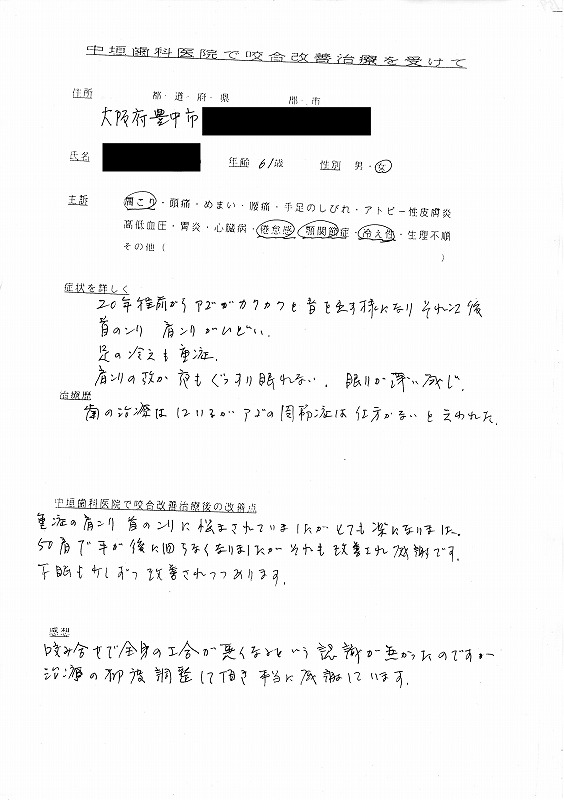 中垣歯科医院で咬合改善治療を受けて
住所 都・道・府・県 郡・市
大阪府豊中市
氏名 年齢 61歳 性別 男・女
主訴 肩こり・頭痛・めまい・腰痛・手足のしびれ・アトピー性皮膚炎
高低血圧・胃炎・心臓病・倦怠感・顎関節症・冷え性・生理不順
その他( )
症状を詳しく
20年程前からアゴがカクカクと音を出す様になりそれ以後
首のコリ 肩コリがひどい.
足の冷えも重症.
肩コリの故か夜もぐっすり眠れない. 眠りが浅い感じ.
治療歴
歯の治療は はいるがアゴの関節症は仕方がないと云われた.
中垣歯科医院で咬合改善治療後の改善点
重症の肩コリ 首のコリに悩まされていましたがとても楽になりました.
50肩で手が後に回らなくなりましたがそれも改善され感謝です.
不眠も少しずつ改善されつつあります.
感想
咬み合せで全身の工合が悪くなるという認識が無かったのですが
治療の都度調整して頂き本当に感謝しています.